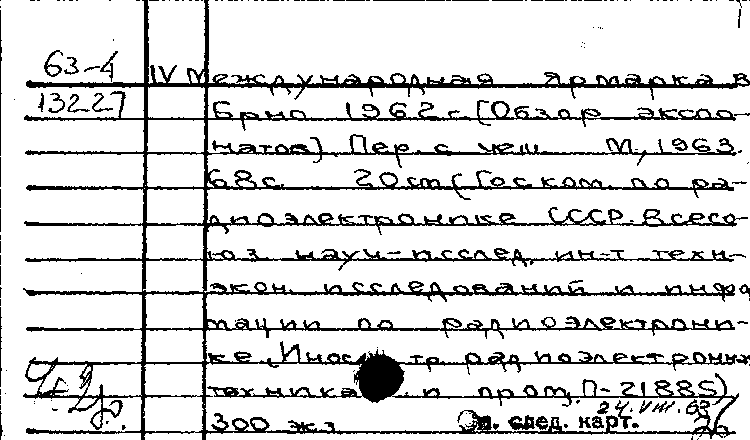 63-4
IV Международная ярмарка в
13227
Брно 1962 г. [Обзор экспо-
натов]. Пер. с чеш. М., 1963.
68 с. 20 см (Гос ком. по ра-
диоэлектронике СССР. Всесо-
юз науч-исслед. ин-т техн-
экон. исследований и инфор
мации по радиоэлектрони-
ке. Инос тр. радиоэлектронн
техника и пром. П-21885)
24.VIII.63
300 экз См. след. карт.